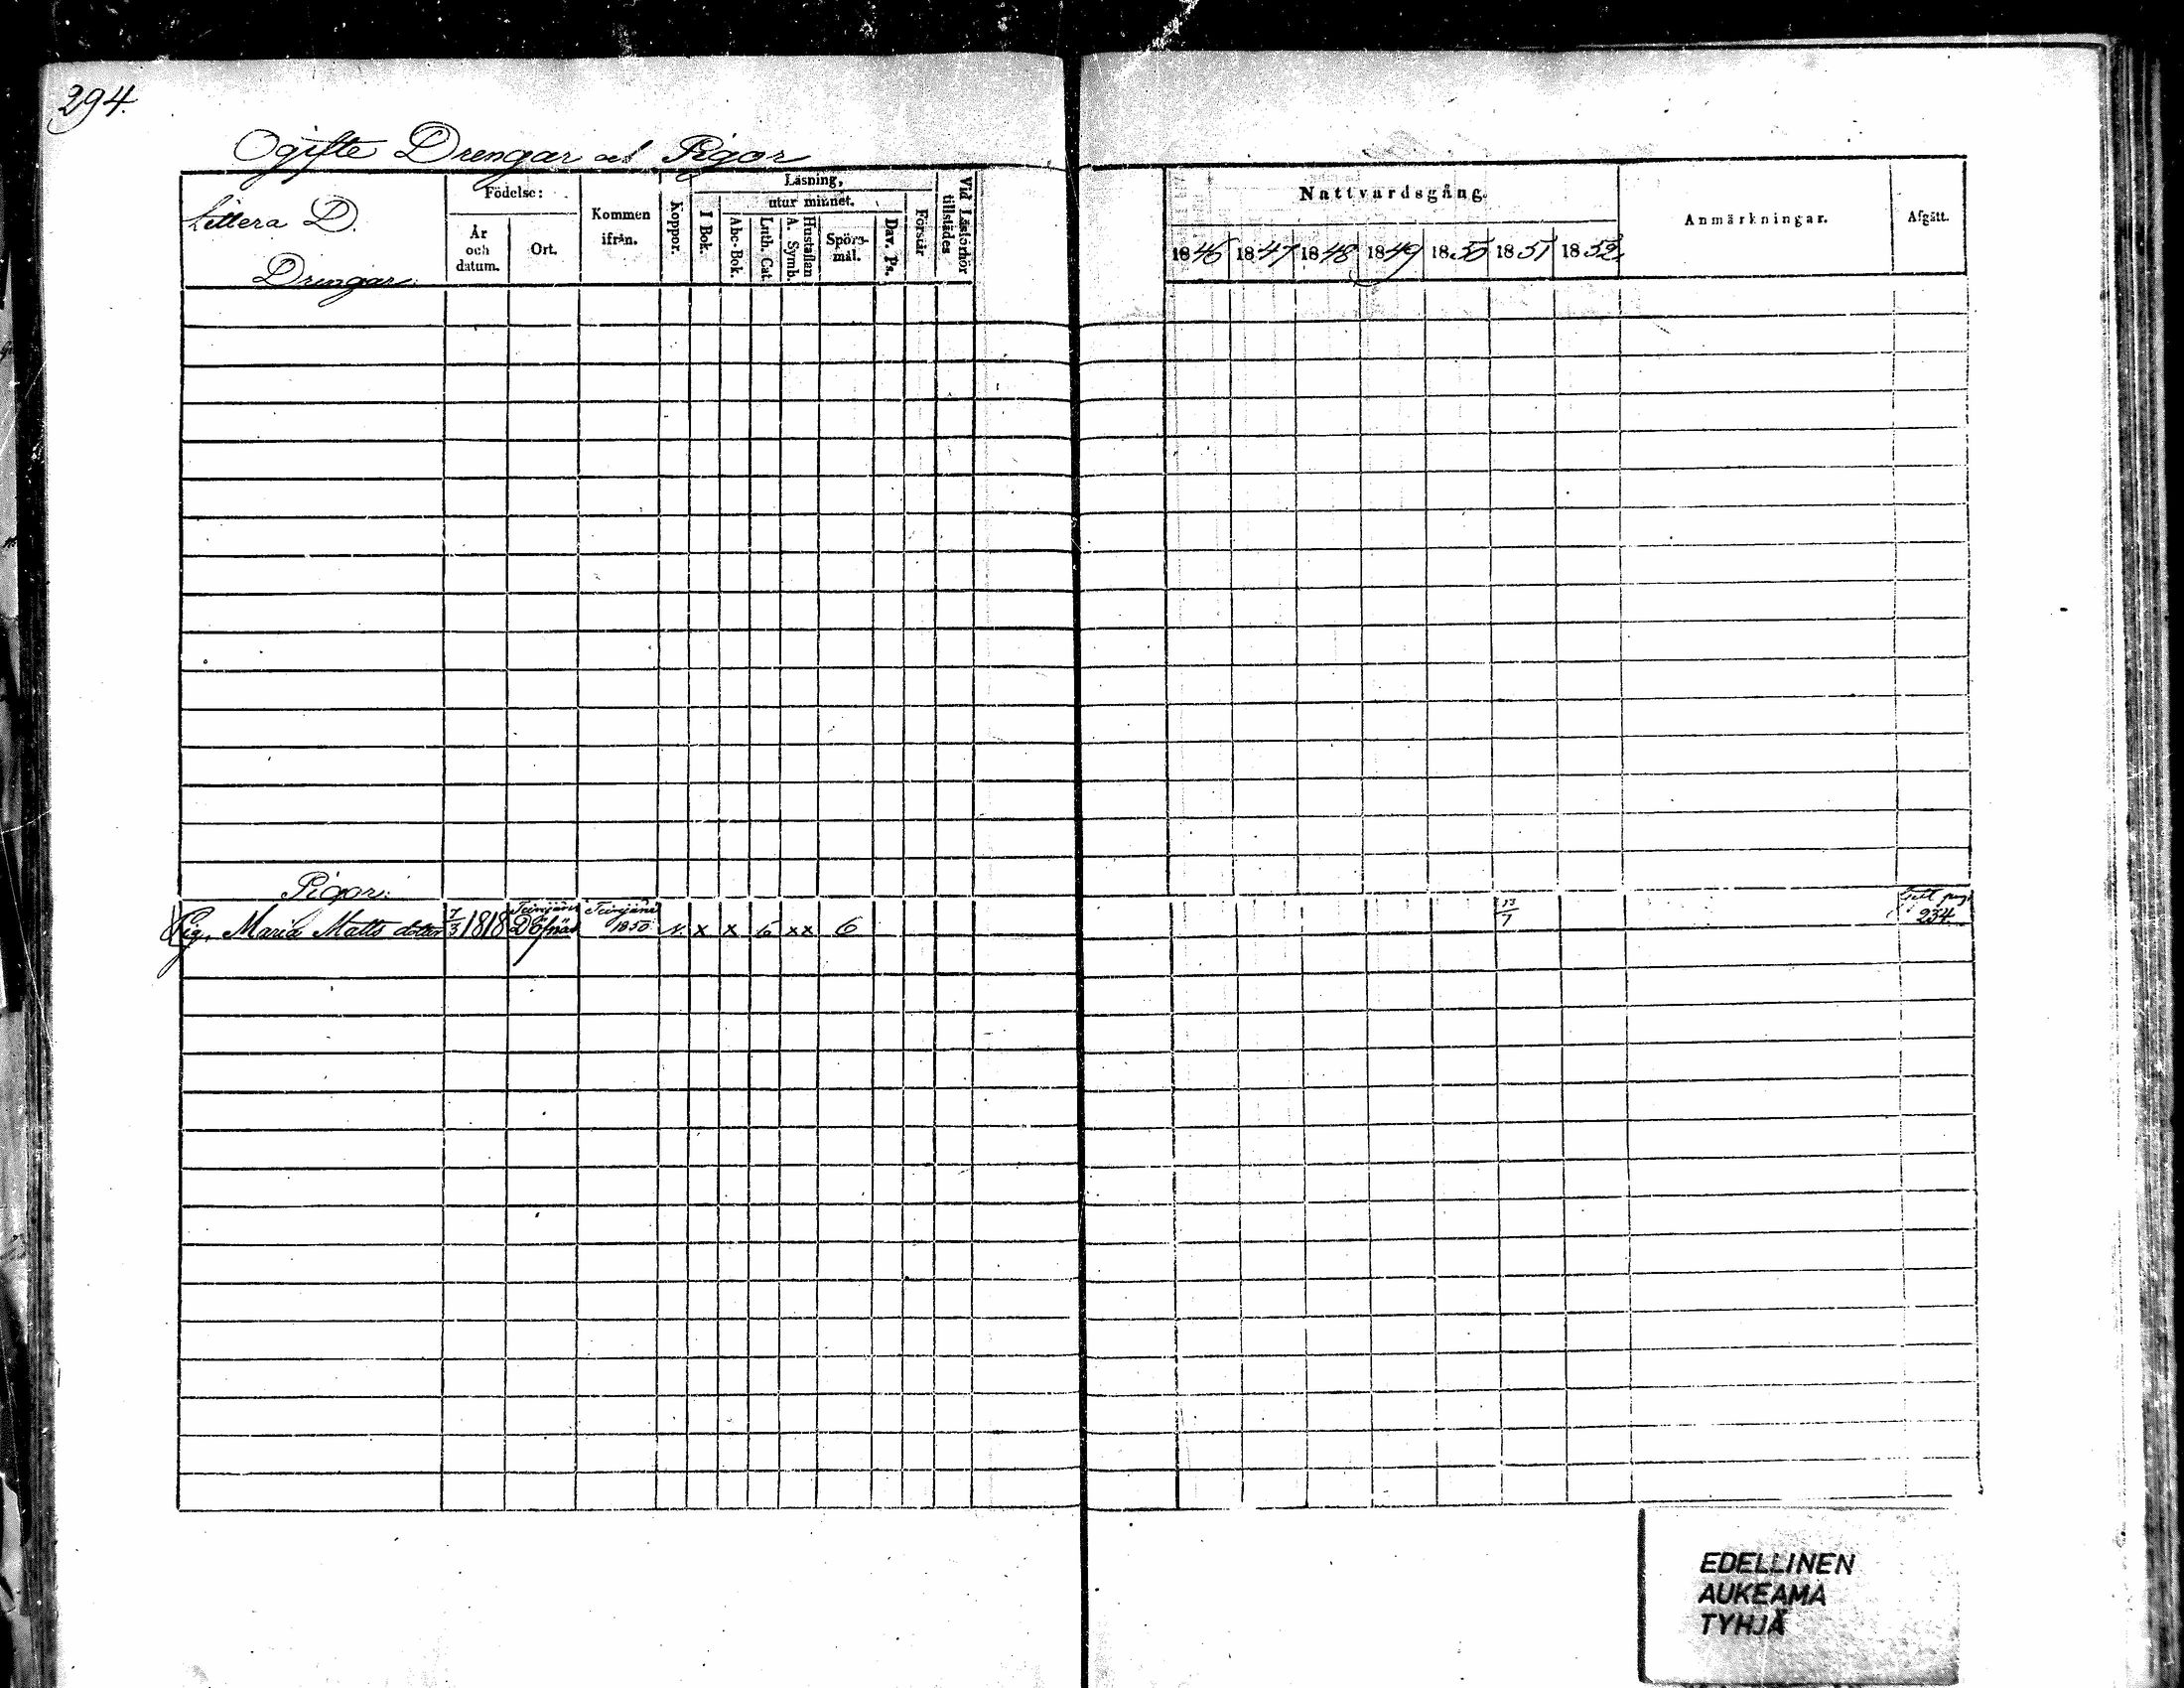 294.
Ogifte Drengar och Pigor
Littera D.
Drengar
Födelse:
År
och
datum.
Ort.
Kommen
ifrån.
Koppor.
Läsning,
I Bok.
utur minnet.
Abc-Bok.
Luth. Cat.
Hustaflan
A. Symb.
Spörs-
mål.
Dav. Ps.
Förstår
Vid Läsförhör
tillstädes
Nattvardsgång.
1846 1847 1848 1849 1850 1851 1852
Anmärkningar.
Afgått.
Pigor:
Pig. Maria Matts dotter 7/3 1818 x x 6 xx 6 13/7 234
1850
EDELLINEN
AUKEAMA
TYHJÄ